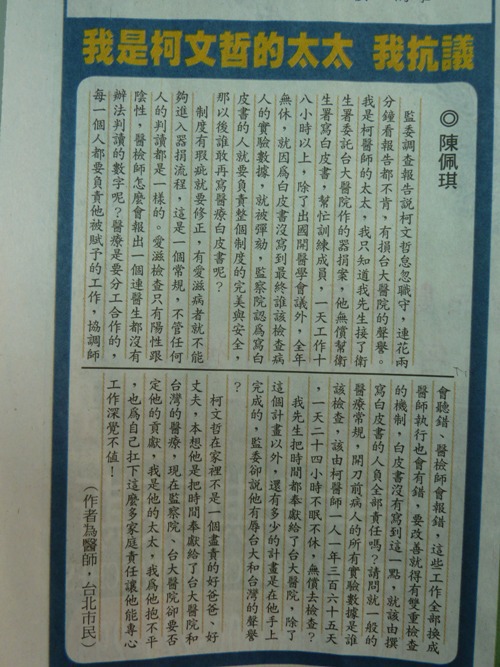 我是柯文哲的太太 我抗議
◎陳佩琪
監委調查報告說柯文哲怠忽職守，連花兩
分鐘看報告都不肯，有損台大醫院的聲譽。
我是柯醫師的太太，我只知道我先生接了衛
生署委託台大醫院作的器捐案，他無償幫衛
生署寫白皮書，幫忙訓練成員，一天工作十
八小時以上，除了出國開醫學會議外，全年
無休，就因為白皮書沒寫到最終誰該檢查病
人的實驗數據，就被彈劾，監察院認為寫白
皮書的人就要負責整個制度的完美與安全，
那以後誰敢再寫醫療白皮書呢？
制度有瑕疵就要修正，有愛滋病者就不能
夠進入器捐流程，這是一個常規，不管任何
人的判讀都是一樣的。愛滋檢查只有陽性跟
陰性，醫檢師怎麼會報出一個連醫生都沒有
辦法判讀的數字呢？醫療是要分工合作的，
每一個人都要負責他被賦予的工作，協調師
會聽錯、醫檢師會報錯，這些工作全部換成
醫師執行也會有錯，要改善就得有雙重檢查
的機制，白皮書沒有寫到這一點，就該由撰
寫白皮書的人員全部責任嗎？請問就一般的
醫療常規，開刀前病人的所有實驗數據是誰
該檢查，該由柯醫師一人一年三百六十五天
，一天二十四小時不眠不休，無償去檢查？
我先生把時間都奉獻給了台大醫院，除了
這個計畫以外，還有多少的計畫是在他手上
完成的，監委卻說他有辱台大和台灣的聲譽
？
柯文哲在家裡不是一個盡責的好爸爸、好
丈夫，本想他是把時間奉獻給了台大醫院和
台灣的醫療，現在監察院、台大醫院卻要否
定他的貢獻，我是他的太太，我為他抱不平
，也為自己扛下這麼多家庭責任讓他能專心
工作深覺不值！
（作者為醫師，台北市民）